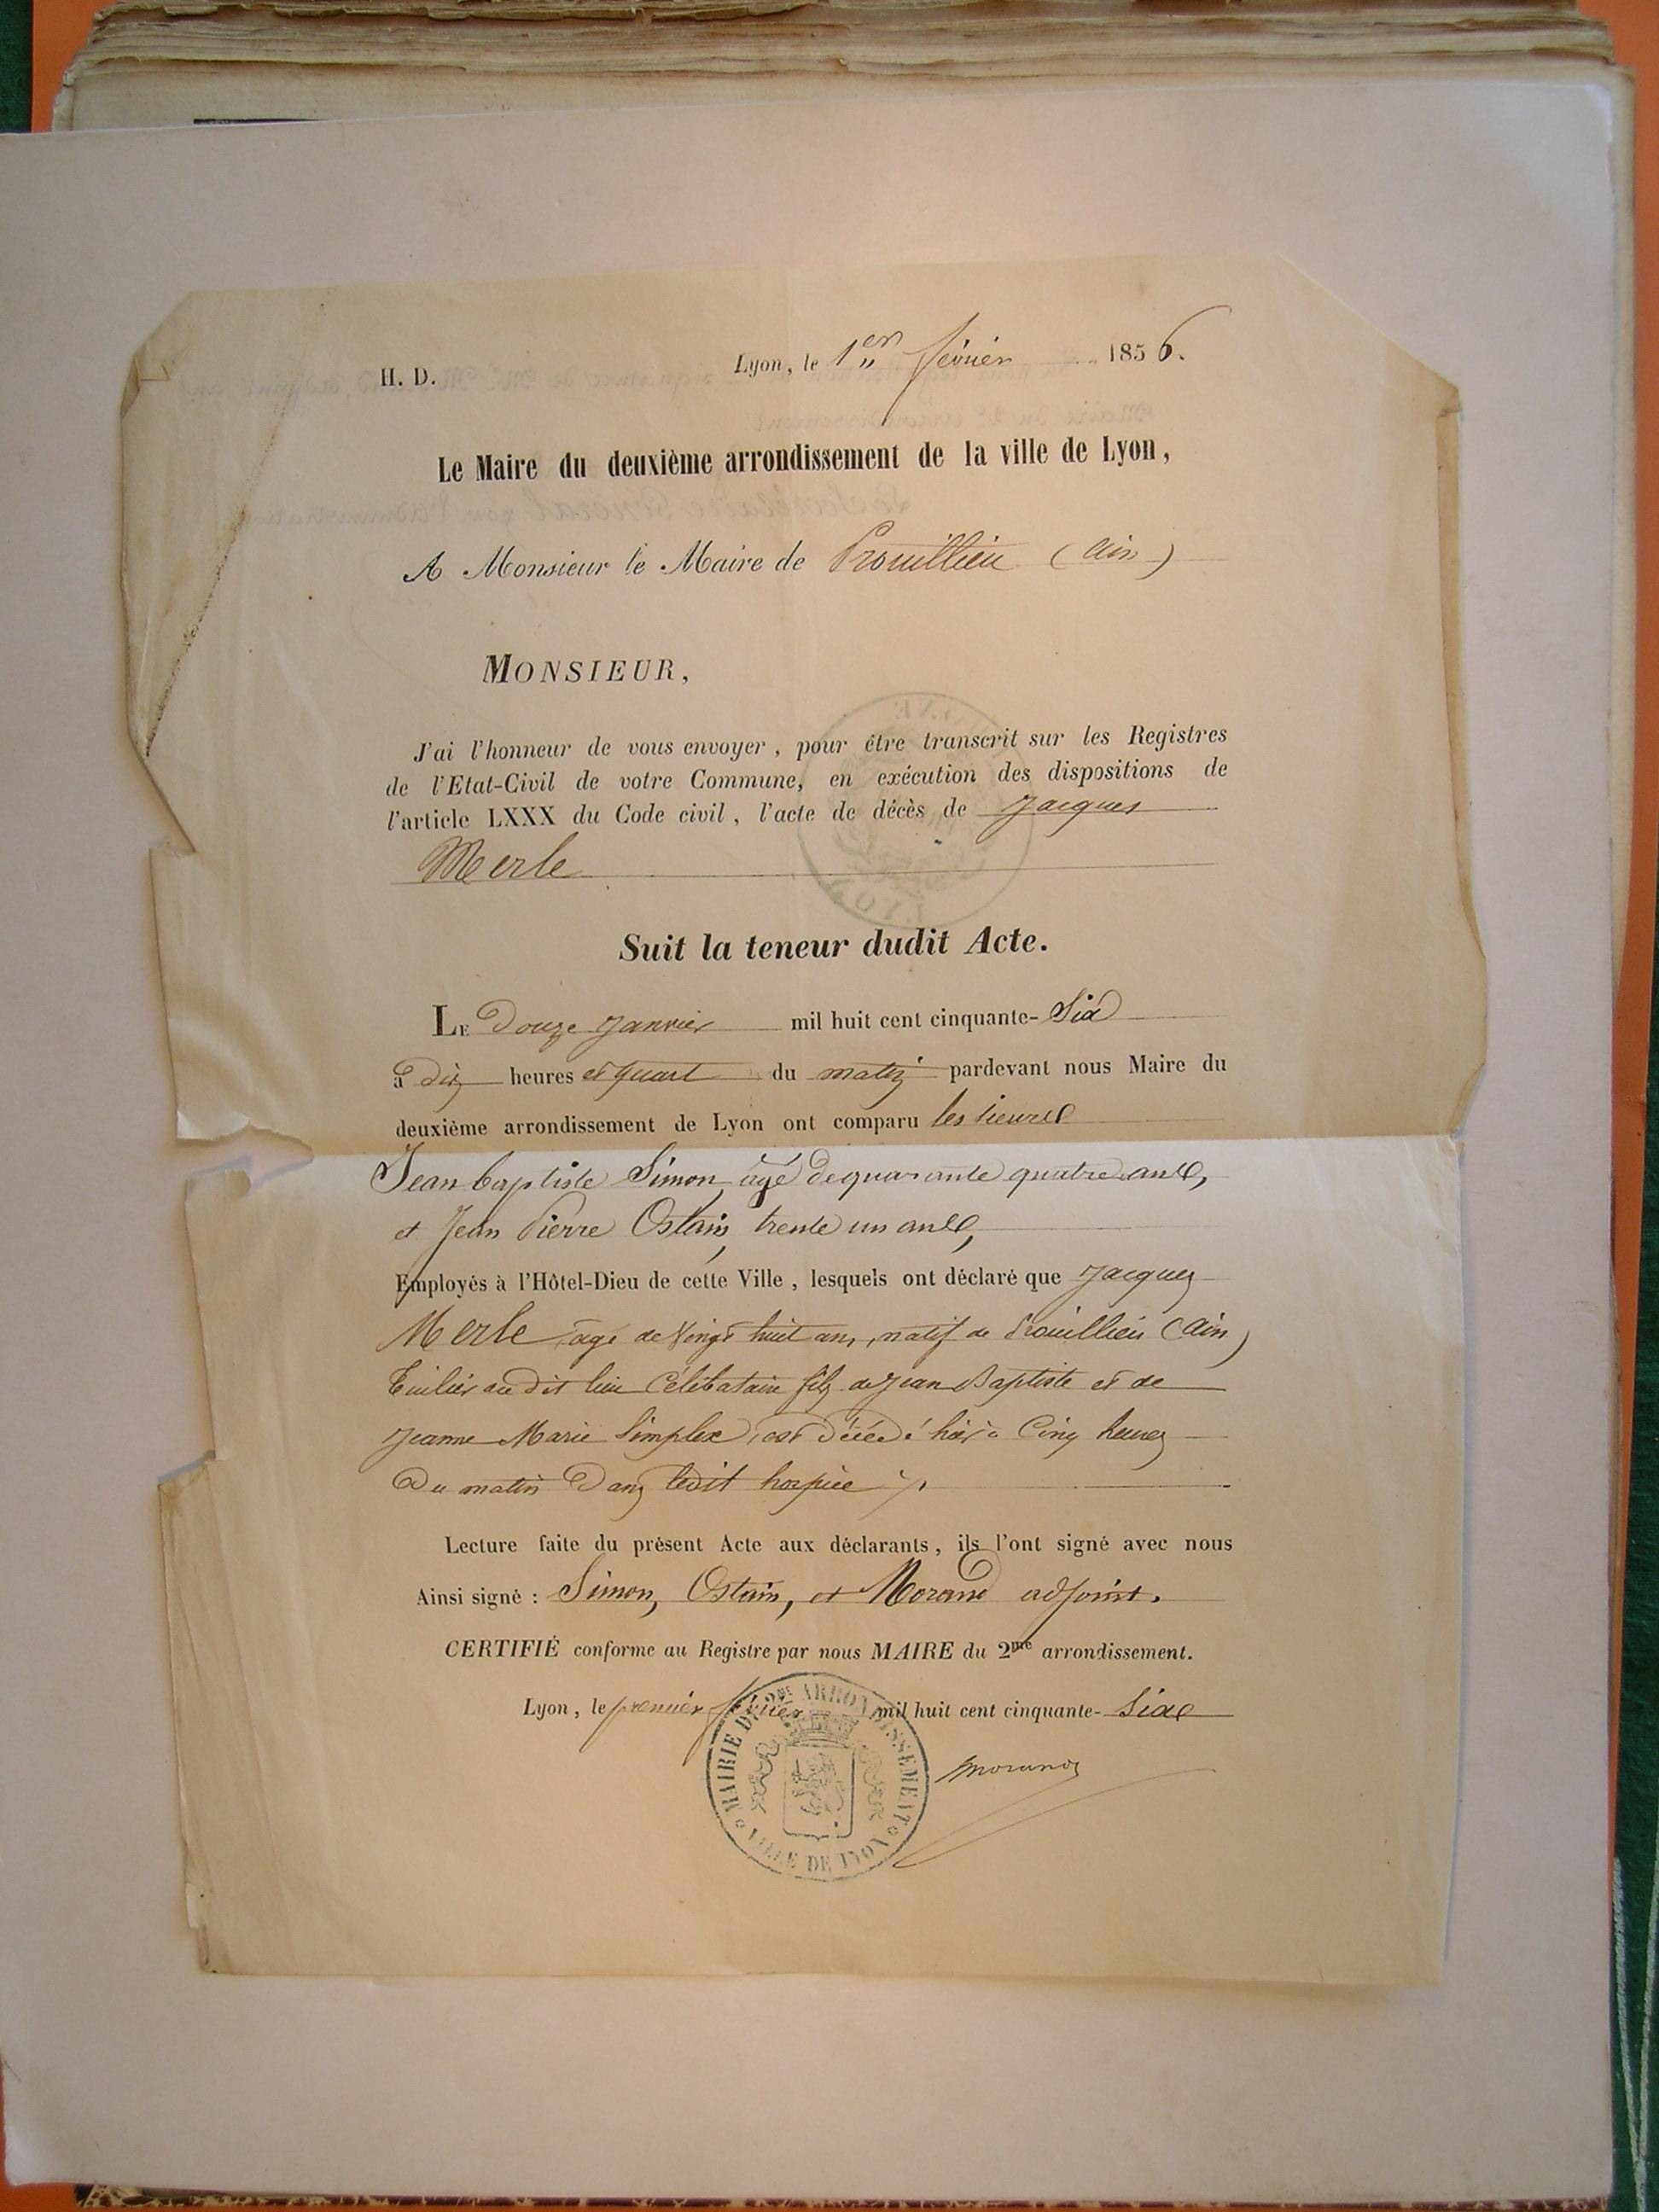 H. D.
Lyon, le 1er février 1856.
Le Maire du deuxième arrondissement de la ville de Lyon,
A Monsieur le Maire de Prouillieu (Ain)
MONSIEUR,
J'ai l'honneur de vous envoyer, pour être transcrit sur les Registres
de l'Etat-Civil de votre Commune, en exécution des dispositions de
l'article LXXX du Code civil, l'acte de décès de Jacques
Merle
Suit la teneur dudit Acte.
LE Douze Janvier mil huit cent cinquante-Six
à dix heures et quart du matin pardevant nous Maire du
deuxième arrondissement de Lyon ont comparu les sieurs
Jean baptiste Simon, agé de quarante quatre ans,
et Jean Pierre Ostain, trente un ans,
Employés à l'Hôtel-Dieu de cette Ville, lesquels ont déclaré que Jacques
Merle, agé de Vingt huit ans, natif de Prouillieu (Ain)
Tuilier au dit lieu Célibataire fils de Jean Baptiste et de
Jeanne Marie Simplex, est Décédé hier à Cinq heures
Du matin Dans ledit hospice
Lecture faite du présent Acte aux déclarants, ils l'ont signé avec nous
Ainsi signé : Simon, Ostain, et Morand adjoint.
CERTIFIÉ conforme au Registre par nous MAIRE du 2me arrondissement.
Lyon, le premier février mil huit cent cinquante-Six
Morand
MAIRIE DU 2me ARRONDISSEMENT
VILLE DE LYON